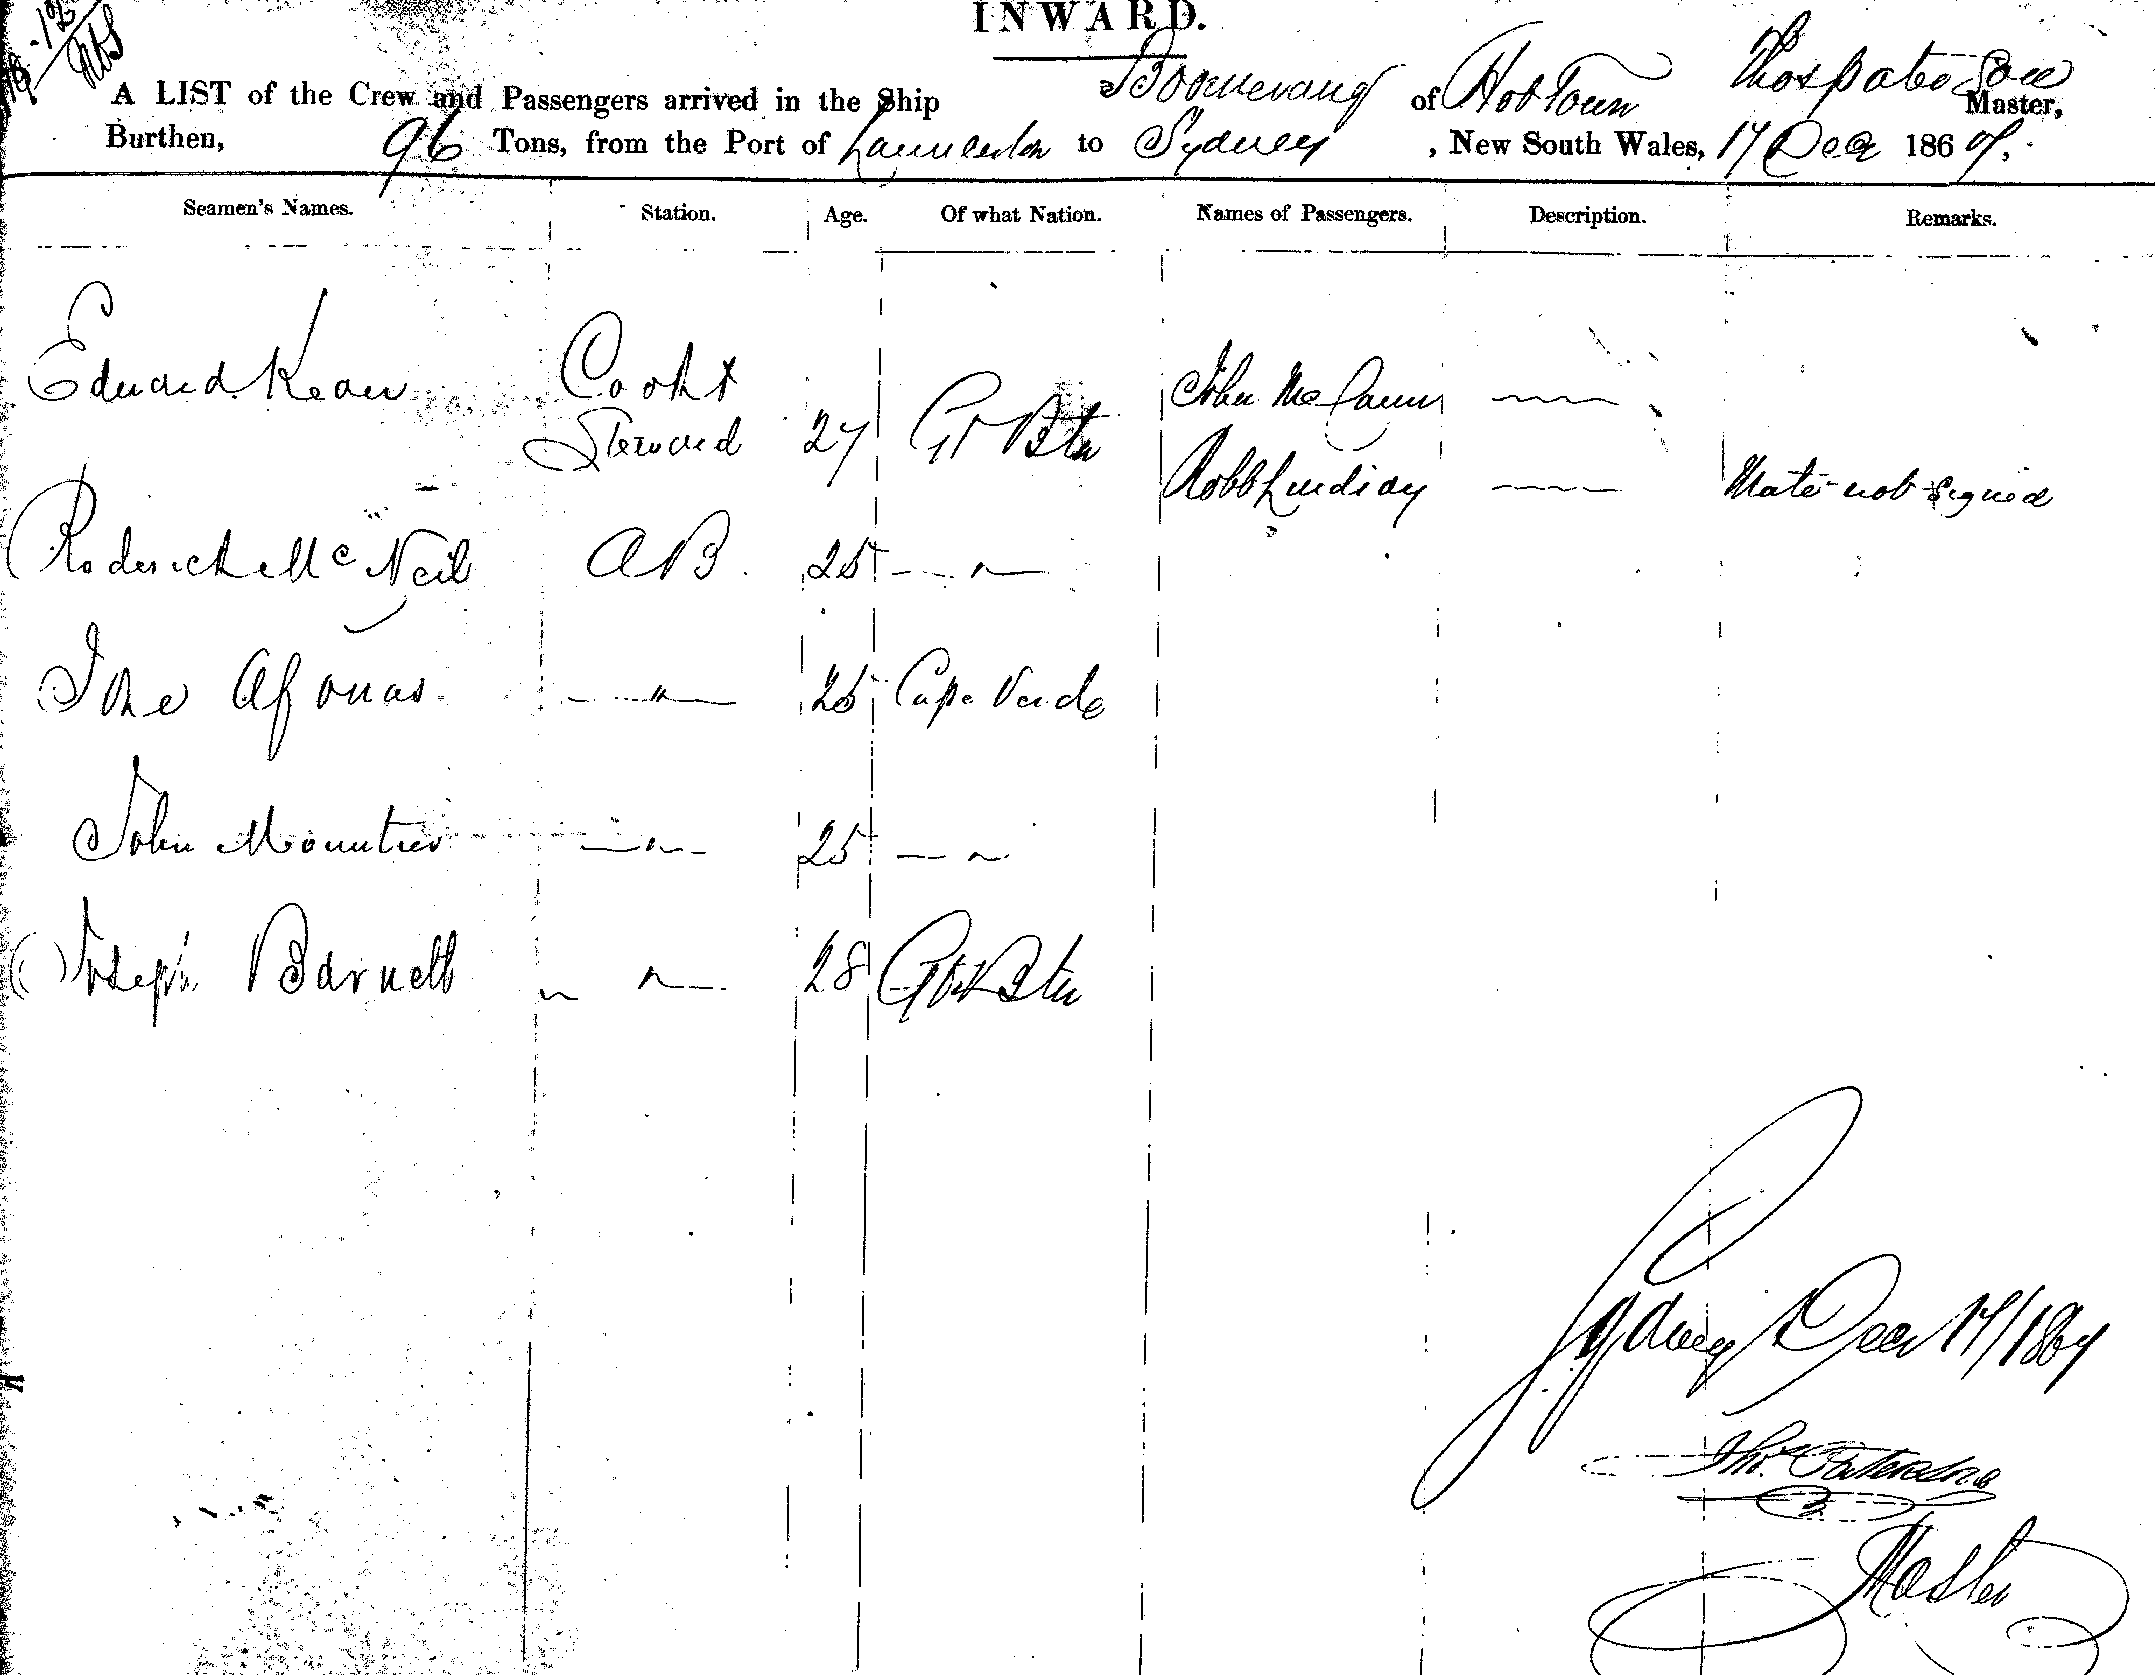 INWARD.
A LIST of the Crew and Passengers arrived in the Ship Boomerang of Hob Town Thos paterson Master,
Burthen, 96 Tons, from the Port of Launceston to Sydney, New South Wales, 17 Decr 1867.
Seamen's Names. Station. Age. Of what Nation. Names of Passengers. Description. Remarks.
Edward Kean Cook &
Steward 27 Gt Btn John McCann
Robt Lindsay Mate not signed
Roderick McNeil AB 25 "
Afonas " 25 Cape Verde
John " 25 "
Joseph Barnett " 28 Gt Btn
Sydney Decr 17/1867
Thos Paterson
Master